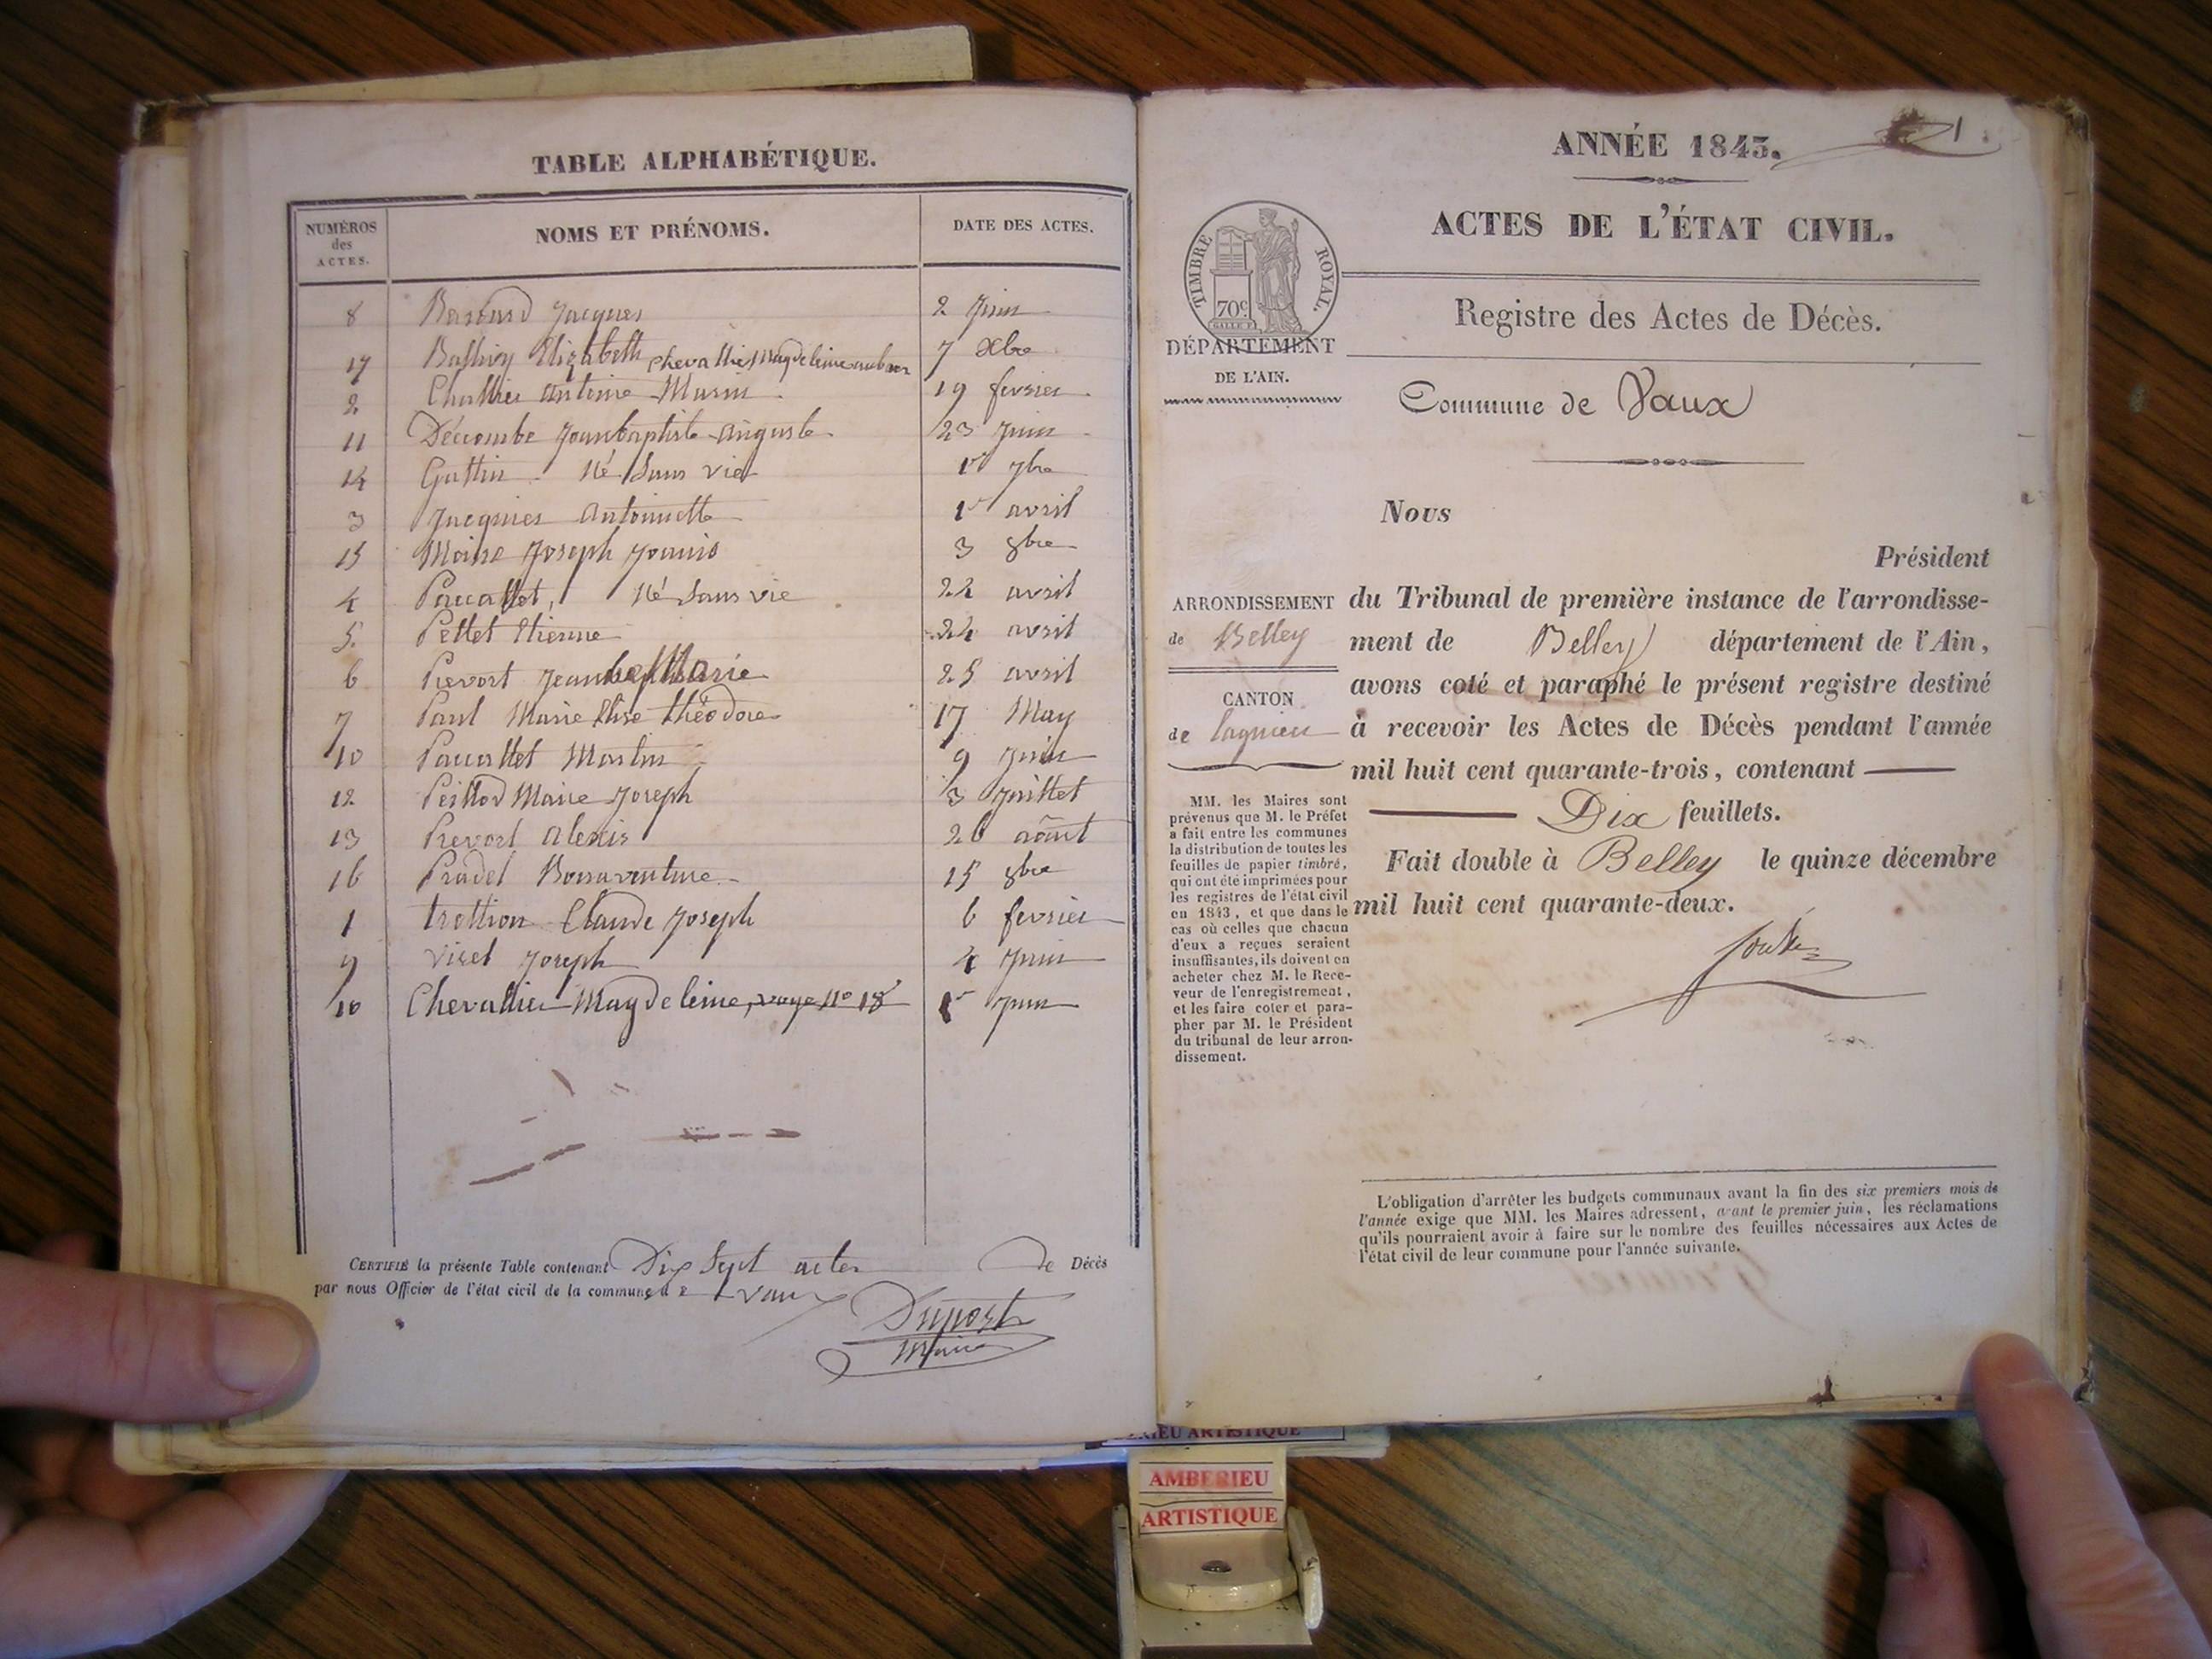 TABLE ALPHABÉTIQUE.
NUMÉROS des ACTES. NOMS ET PRÉNOMS. DATE DES ACTES.
8 Jacques 2 Juin
17 Elizabeth Chevallier Magdeleine 7 Xbre
2 Antoine Marin 19 fevrier
11 Décombe Jeanbaptiste Auguste 23 Juin
14 Gattin Né Sans vie 1r 7bre
3 Jacquier Antoinette 1r avril
15 Moine Joseph 3 8bre
4 Né Sans vie 24 avril
5. Pettet Etienne 24 avril
6 Prevost Jean Marie 25 avril
7 Paul Marie Elise théodore 17 May
10 Martin 9 Juin
12 Peillod Marie Joseph 3 Juillet
13 Prevost Alexis 26 août
16 Pradel Bonaventure 15 8bre
1 trottion Claude Joseph 6 fevrier
9 viret Joseph 4 Juin
10 Chevallier Magdeleine, voye No 18 1r Juin
CERTIFIÉ la présente Table contenant Dix Sept actes de Décès
par nous Officier de l'état civil de la commune de vaux
Dupost
Maire
1
ANNÉE 1843.
ACTES DE L'ÉTAT CIVIL.
TIMBRE ROYAL.
70c
Registre des Actes de Décès.
DÉPARTEMENT
DE L'AIN.
Commune de Vaux
Nous
Président
ARRONDISSEMENT
de Belley
CANTON
de Lagnieu
du Tribunal de première instance de l'arrondisse-
ment de Belley département de l'Ain,
avons coté et paraphé le présent registre destiné
à recevoir les Actes de Décès pendant l'année
mil huit cent quarante-trois, contenant
Dix feuillets.
Fait double à Belley le quinze décembre
mil huit cent quarante-deux.
MM. les Maires sont
prévenus que M. le Préfet
a fait entre les communes
la distribution de toutes les
feuilles de papier timbré,
qui ont été imprimées pour
les registres de l'état civil
en 1843, et que dans le
cas où celles que chacun
d'eux a reçues seraient
insuffisantes, ils doivent en
acheter chez M. le Rece-
veur de l'enregistrement,
et les faire coter et para-
pher par M. le Président
du tribunal de leur arron-
dissement.
L'obligation d'arrêter les budgets communaux avant la fin des six premiers mois de
l'année exige que MM. les Maires adressent, avant le premier juin, les réclamations
qu'ils pourraient avoir à faire sur le nombre des feuilles nécessaires aux Actes de
l'état civil de leur commune pour l'année suivante.
ARTISTIQUE
AMBERIEU
ARTISTIQUE